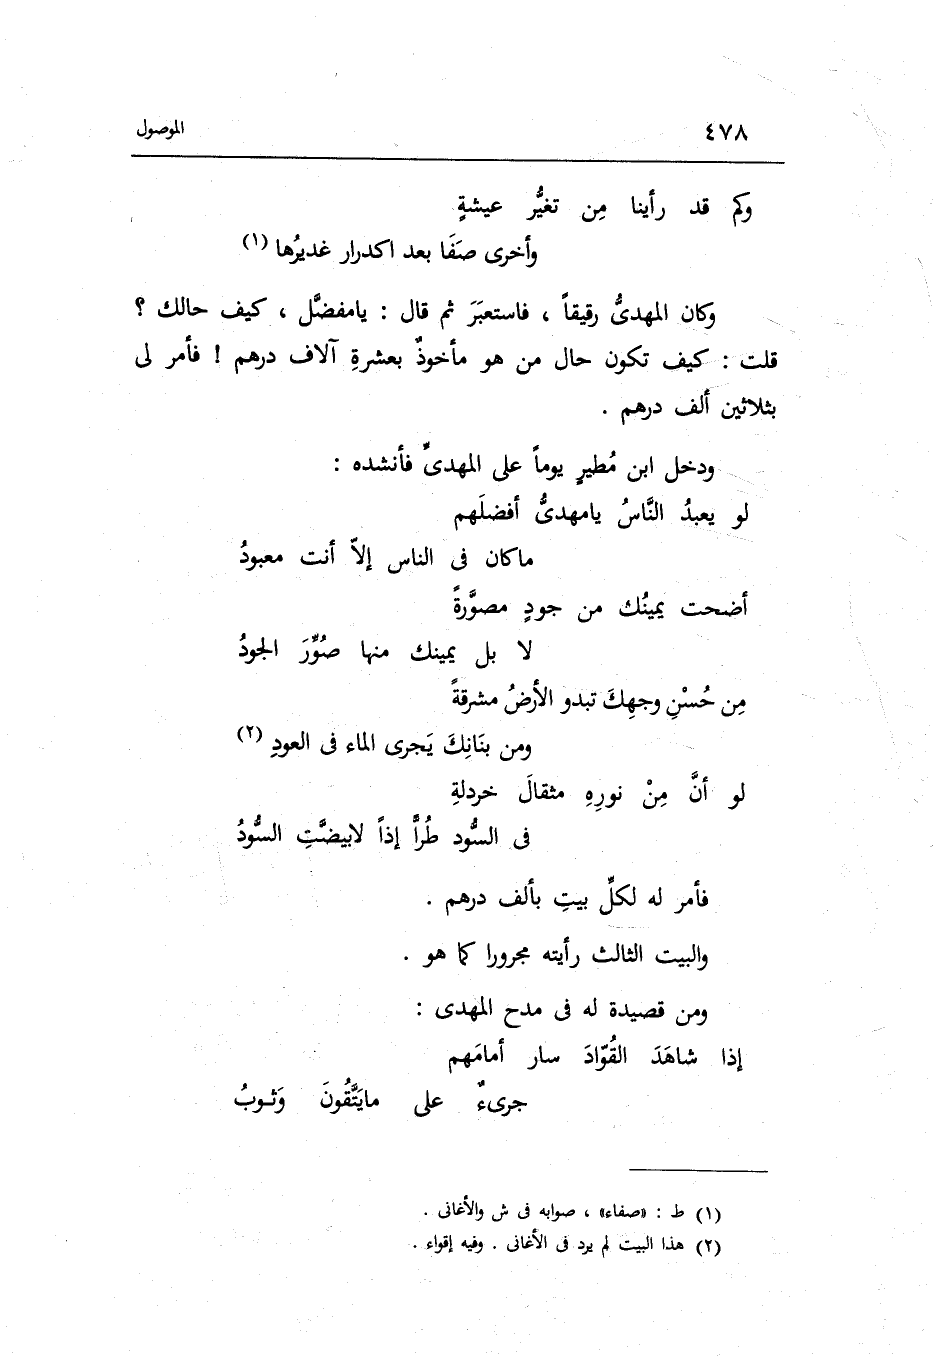 ٤٧٨
الموصول
وكم قد رأينا مِن تغيُّر عيشةٍ
وأخرى صفَا بعد اكدرار غديرُها (١)
وكان المهدىُّ رقيقاً ، فاستعبَرَ ثم قال : يامفضَّل ، كيف حالك ؟
قلت : كيف تكون حال من هو مأخوذٌ بعشرةِ آلاف درهم ! فأمر لى
بثلاثين ألف درهم .
ودخل ابن مُطيرٍ يوماً على المهدىِّ فأنشده :
لو يعبدُ النَّاسُ يامهدىُّ أفضلَهم
ماكان فى الناس إلاّ أنت معبودُ
أضحت يمينُك من جودٍ مصوَّرةً
لا بل يمينك منها صُوِّرَ الجودُ
مِن حُسْنِ وجهِكَ تبدو الأرضُ مشرقةً
ومن بنَانِكَ يَجرى الماء فى العودِ (٢)
لو أنَّ مِنْ نورِهِ مثقالَ خردلةِ
فى السُّود طُرًّا إذاً لابيضَّتِ السُّودُ
فأمر له لكلِّ بيتِ بألف درهم .
والبيت الثالث رأيته مجرورا كما هو .
ومن قصيدة له فى مدح المهدى :
إذا شاهَدَ القُوّادَ سار أمامَهم
جرىءٌ على مايَتَّقُونَ وَثـوبُ
(١) ط : «صفاء» ، صوابه فى ش والأغانى .
(٢) هذا البيت لم يرد فى الأغانى . وفيه إقواء .